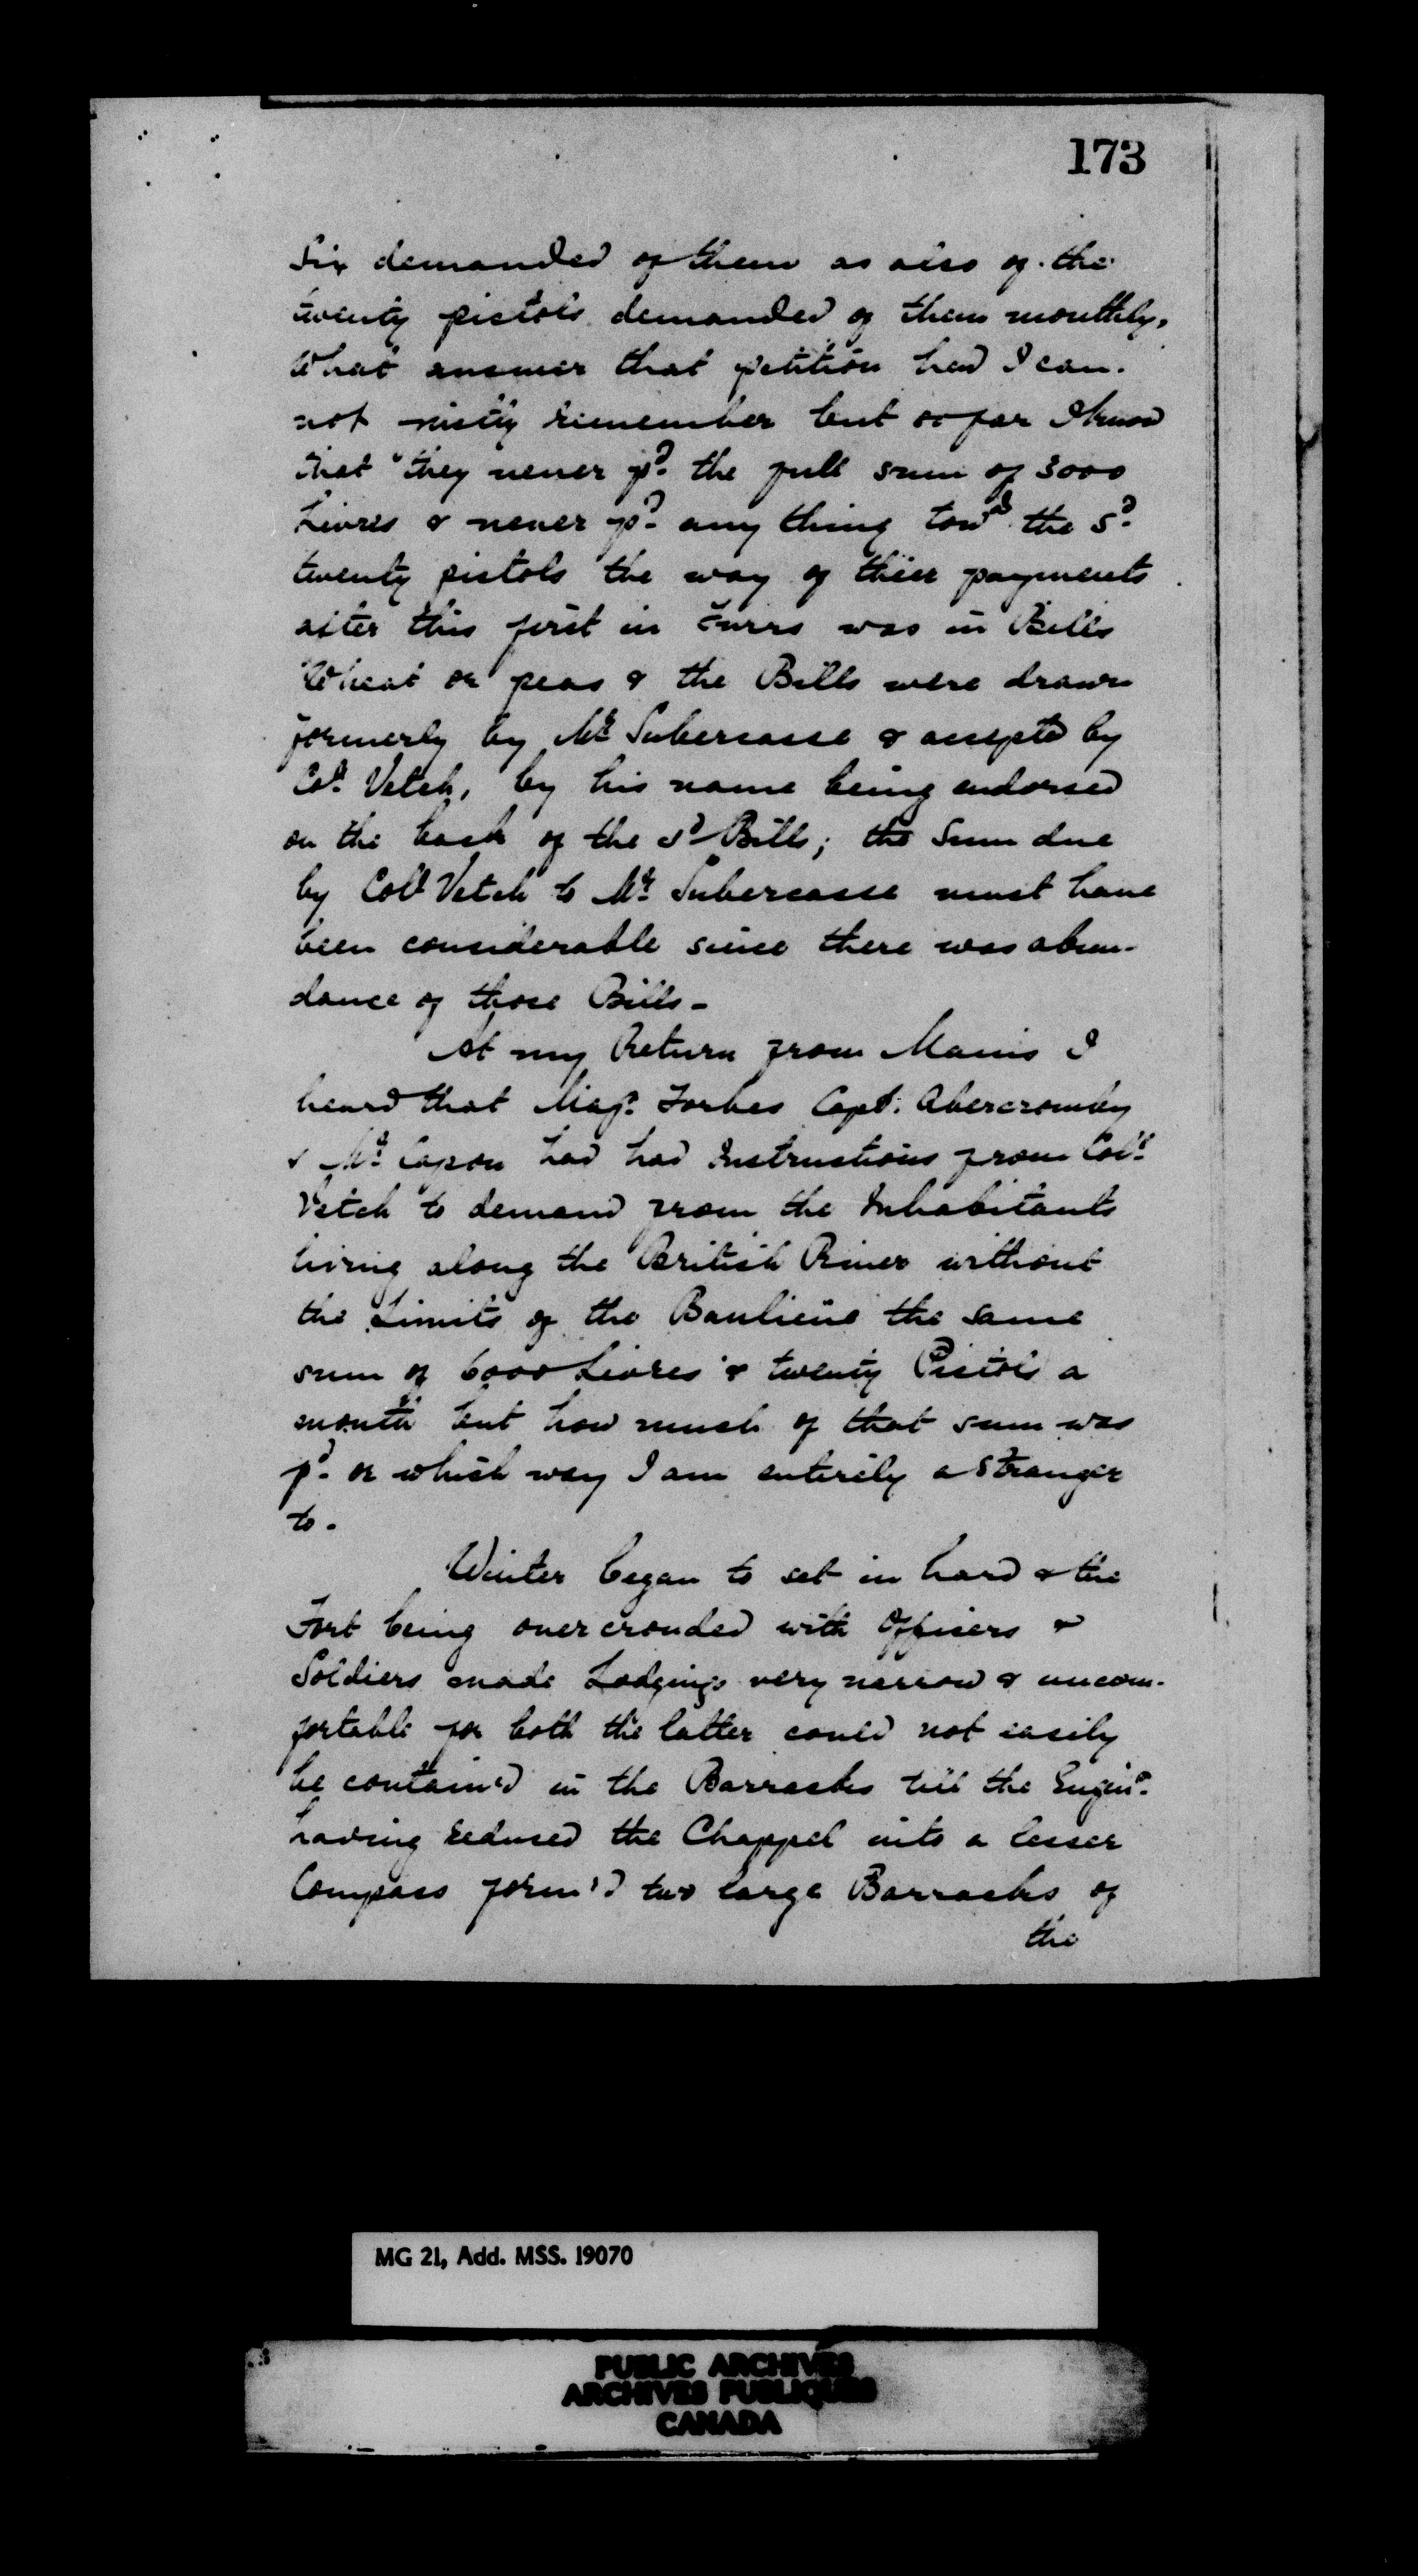 173
Six demanded of them as also of the
twenty pistols demanded of them monthly,
What answer that petition had I can-
not justly remember but so far I know
that they never p.d the full sum of 3000
Livres & never p.d any thing tow.d the s.d
twenty pistols the way of their payments
after this first in Furrs was in Bills
Wheat or peas & the Bills were drawn
formerly by Mr. Subercasse & accepted by
Col. Vetch, by his name being endorsed
on the back of the s.d Bills; the Sum due
by Coll. Vetch to Mr. Subercasse must have
been considerable since there was abun-
dance of those Bills-
At my Return from Manis I
heard that Majr. Forbes Capt. Abercromby
& Mr. Capon had had Instructions from Coll.
Vetch to demand from the Inhabitants
living along the British River without
the Limits of the Banlieüe the same
sum of 6000 Livres & twenty Pistols a
month but how much of that sum was
p.d or which way I am entirely a Stranger
to.
Winter began to set in hard & the
Fort being overcrouded with Officers &
Soldiers made Lodgings very narrow & uncom-
fortable for both the latter could not easily
be contain'd in the Barracks till the Engin.r
having reduced the Chappel into a lesser
Compass form'd two large Barracks of
the
MG 21, Add. MSS. 19070
PUBLIC ARCHIVES
ARCHIVES PUBLIQUES
CANADA